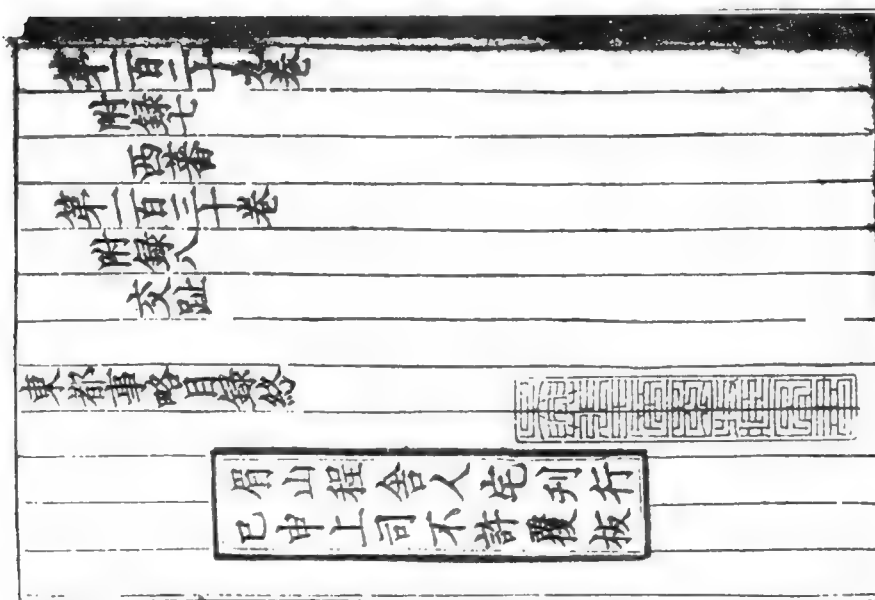 第一百二十九卷
附錄七
西蕃
第一百三十卷
附錄八
交趾
東都事畧目錄終
眉山程舍人宅刊行
已申上司不許覆板